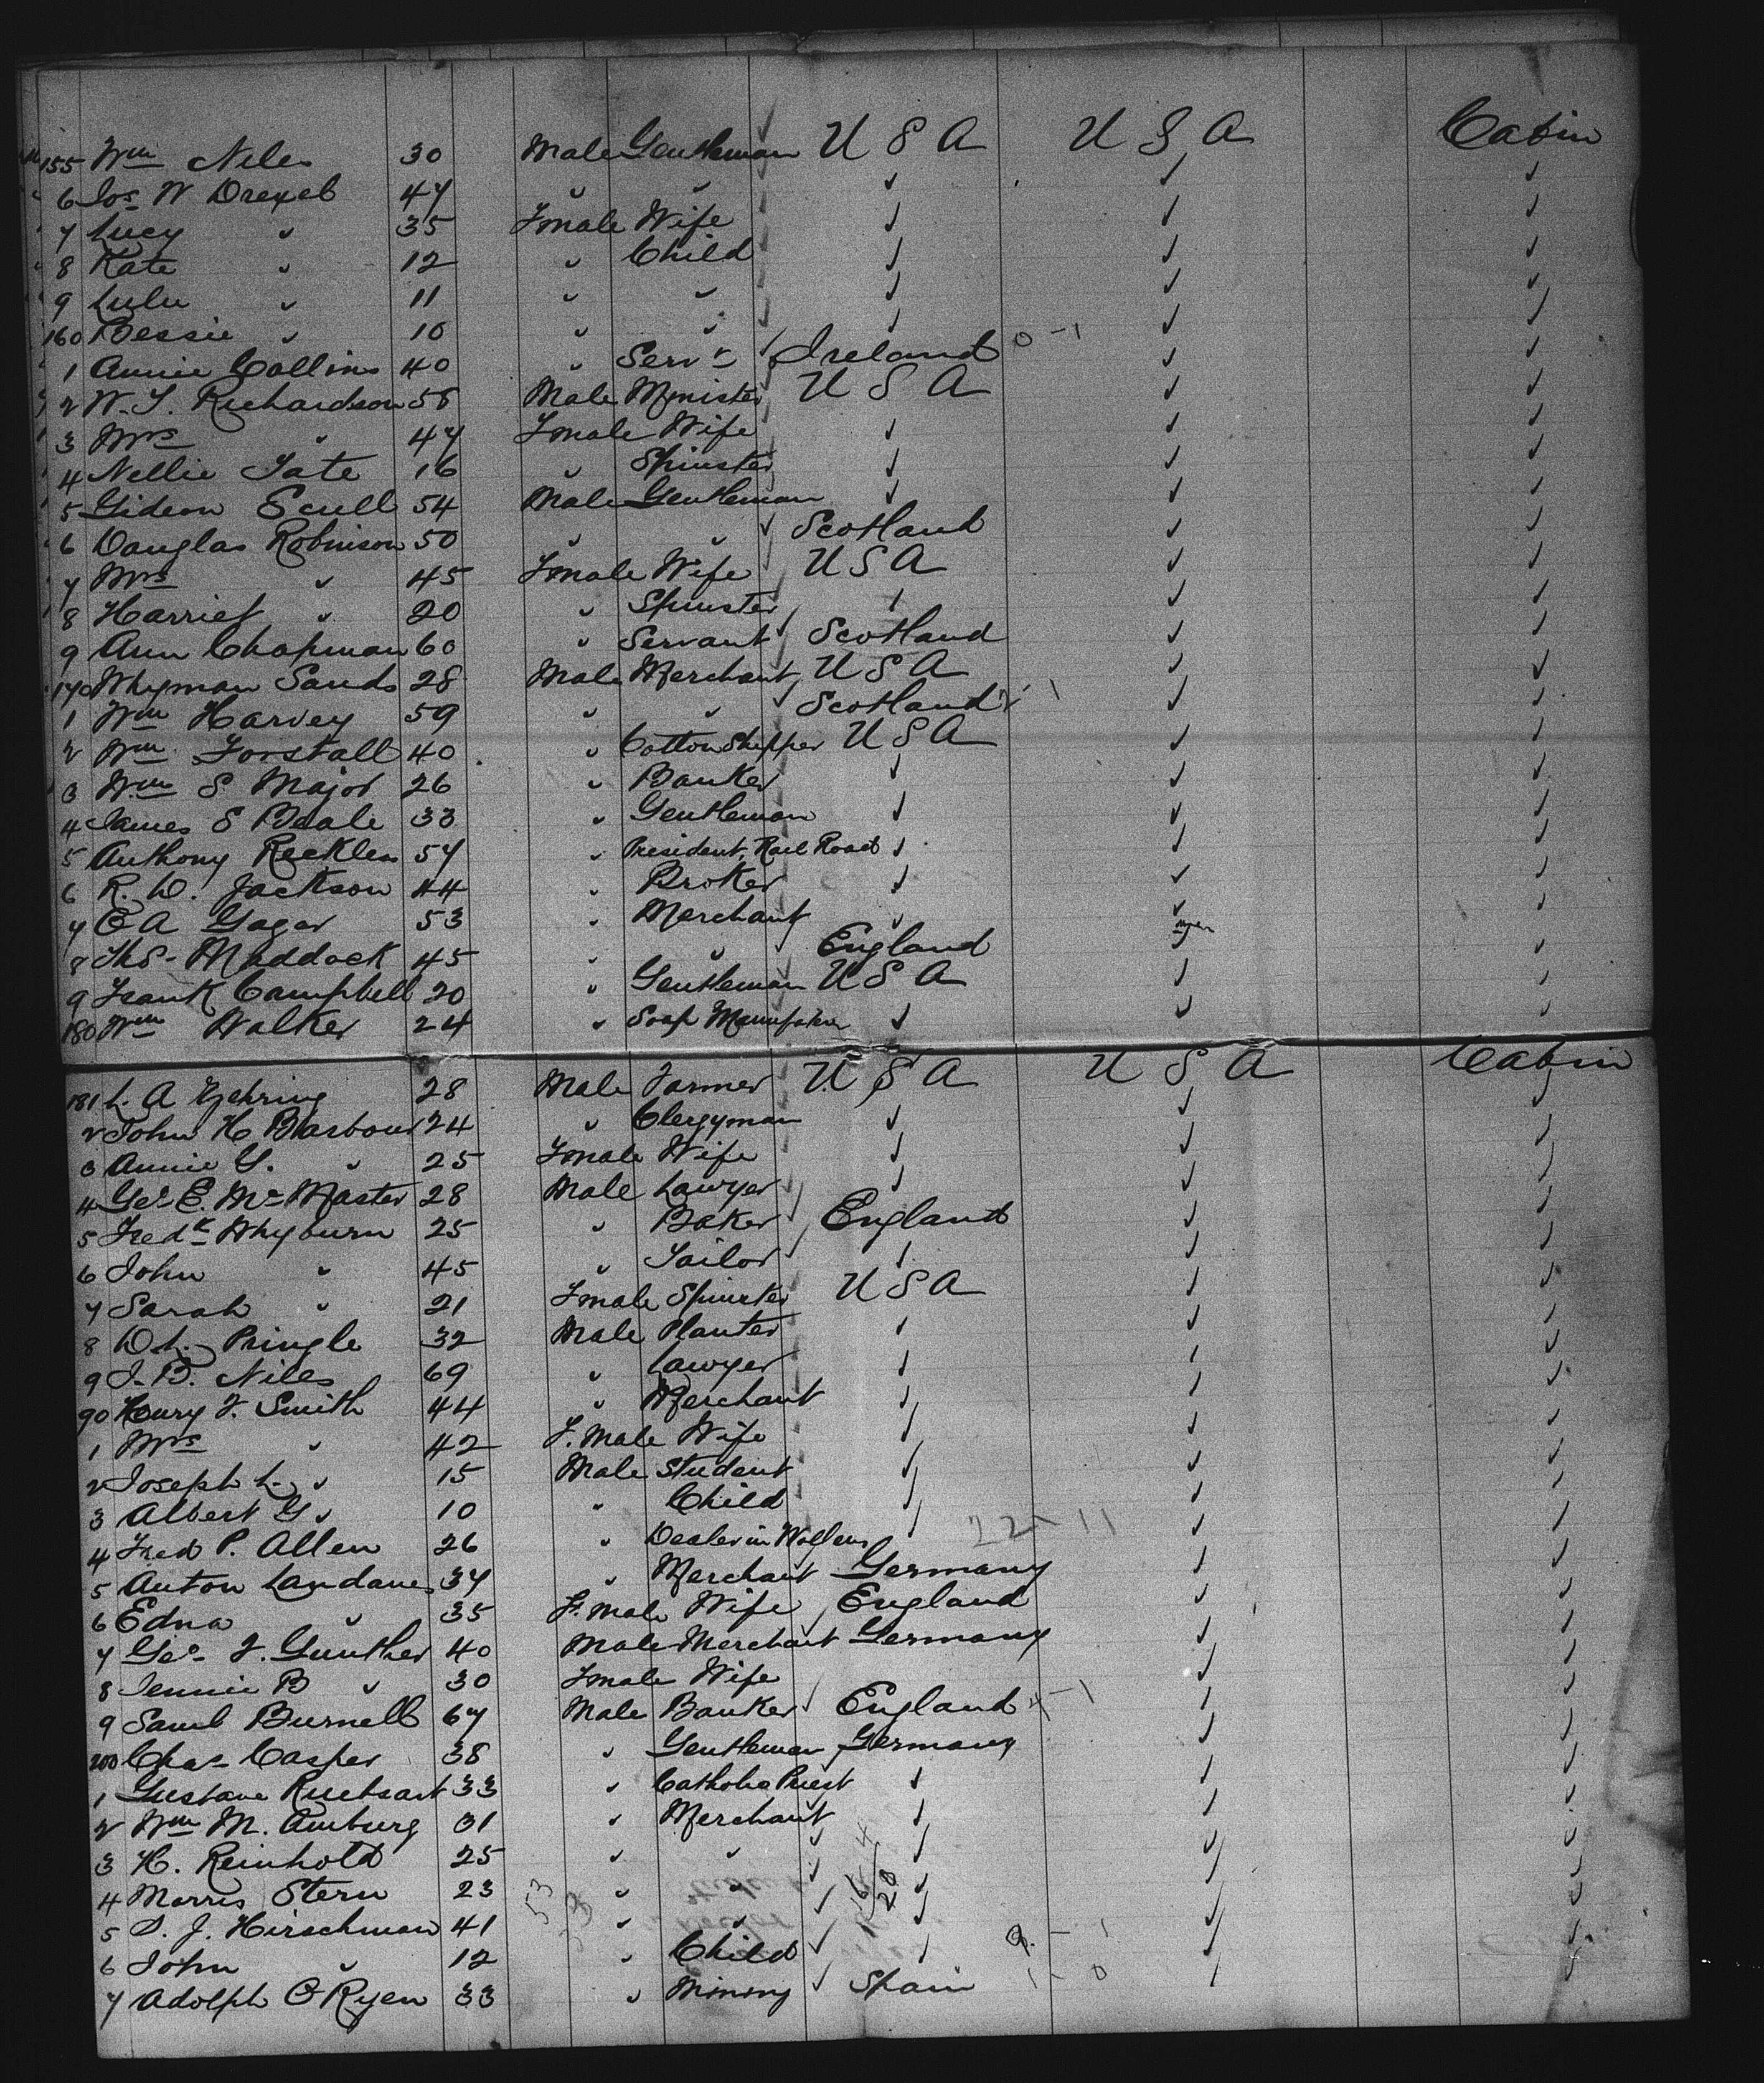 155 Wm Niles 30 Male Gentleman U S A U S A Cabin
6 Jos W Drexel 47 " " ✓ ✓ ✓
7 Lucy " 35 Female Wife ✓ ✓ ✓
8 Kate " 12 " Child ✓ ✓ ✓
9 Lulu " 11 " " ✓ ✓ ✓
160 Bessie " 10 " " ✓ ✓ ✓
1 Annie Collins 40 " Servt Ireland 0-1 ✓ ✓
2 W. S. Richardson 56 Male Minister U S A ✓ ✓
3 Mrs " 47 Female Wife ✓ ✓ ✓
4 Nellie Tate 16 " Spinster ✓ ✓ ✓
5 Gideon Scull 54 Male Gentleman ✓ ✓ ✓
6 Douglas Robinson 50 " " Scotland ✓ ✓
7 Mrs " 45 Female Wife U S A ✓ ✓
8 Harriet " 20 " Spinster ✓ ✓ ✓
9 Ann Chapman 60 " Servant Scotland ✓ ✓
170 Whyman Sands 28 Male Merchant U S A ✓ ✓
1 Wm Harvey 59 " " Scotland ✓ ✓
2 Wm Forstall 40 " Cotton Shipper U S A ✓ ✓
3 Wm S Major 26 " Banker ✓ ✓ ✓
4 James S Beale 33 " Gentleman ✓ ✓ ✓
5 Anthony Reckless 57 " President, Rail Road ✓ ✓ ✓
6 R. W. Jackson 44 " Broker ✓ ✓ ✓
7 E A Yager 53 " Merchant ✓ ✓ ✓
8 Ths Maddock 45 " " England ✓
9 Frank Campbell 20 " Gentleman U S A ✓ ✓
180 Wm Walker 24 " Soap ✓ ✓ ✓
181 L. A Gehring 28 Male Farmer U S A U S A Cabin
2 John H Barbour 24 " Clergyman ✓ ✓ ✓
3 Annie G. " 25 Female Wife ✓ ✓ ✓
4 Geo E. McMaster 28 Male Lawyer ✓ ✓ ✓
5 Fredk Whyburn 25 " Baker England ✓ ✓
6 John " 45 " Tailor ✓ ✓ ✓
7 Sarah " 21 Female Spinster U S A ✓ ✓
8 D. L. Pringle 32 Male Planter ✓ ✓ ✓
9 J. B. Niles 69 " Lawyer ✓ ✓ ✓
90 Henry F. Smith 44 " Merchant ✓ ✓ ✓
1 Mrs " 42 F. male Wife ✓ ✓ ✓
2 Joseph L. " 15 Male Student ✓ ✓ ✓
3 Albert G " 10 " Child ✓ ✓ ✓
4 Fred P. Allen 26 " Dealer in ✓ 22-11 ✓ ✓
5 Anton Landauer 37 " Merchant Germany ✓ ✓
6 Edna " 35 F. male Wife England ✓ ✓
7 Geo F. Gunther 40 Male Merchant Germany ✓ ✓
8 Jennie B " 30 Female Wife ✓ ✓
9 Saml Burnell 67 Male Banker England 4-1 ✓ ✓
200 Chas Casper 38 " Gentleman Germany ✓ ✓
1 Gustave 33 " Catholic Priest ✓ ✓ ✓
2 Wm M. Amburg 31 " Merchant ✓ ✓ ✓
3 H. Reinhold 25 " " ✓ ✓ ✓
4 Morris Stern 23 " " ✓ ✓ ✓
5 S. J. Hirschman 41 " " ✓ ✓ ✓
6 John " 12 " Child ✓ 9 - 1 ✓ ✓
7 Adolph O Ryen 33 " Mining Spain 1-0 ✓ ✓